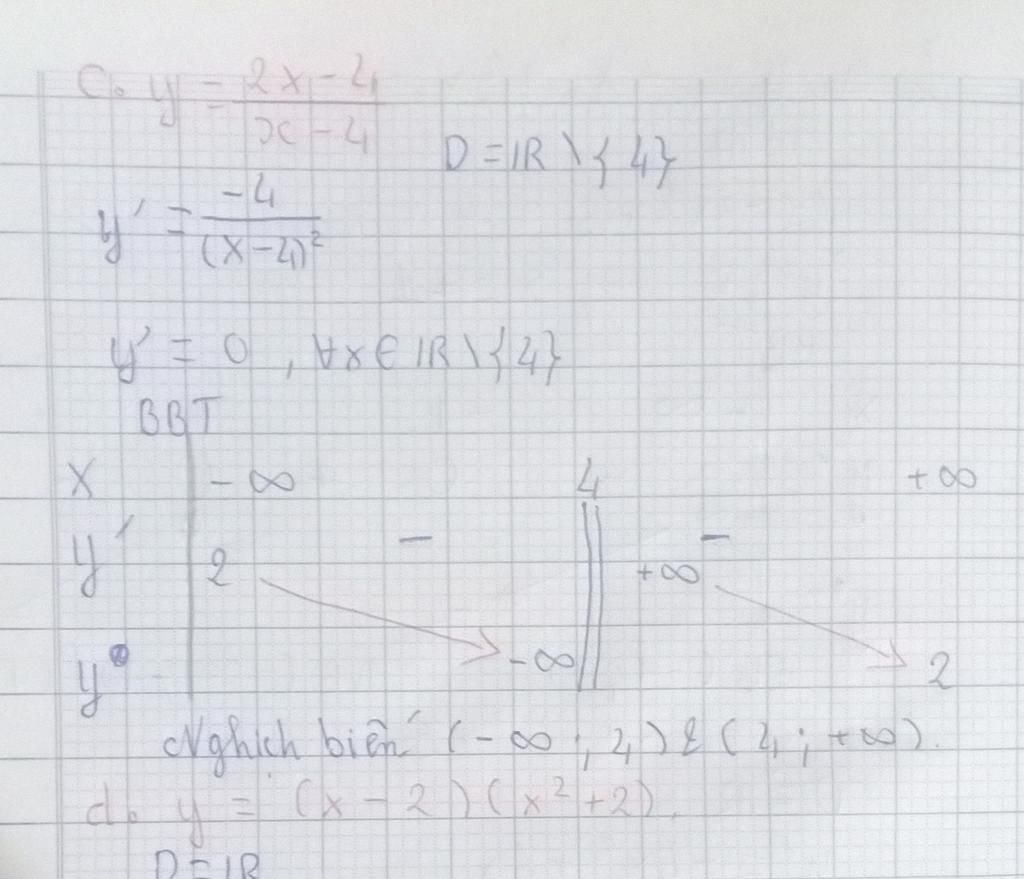 c. y = \frac{2x-4}{x-4}
D = ℝ \ {4}
y' = \frac{-4}{(x-4)^2}
y' = 0, ∀x ∈ ℝ \ {4}
BBT
x -∞ 4 +∞
y' - -
2 +∞
y -∞ 2
Nghịch biến (-∞; 4) & (4; +∞).
d. y = (x-2)(x²+2).
D = ℝ